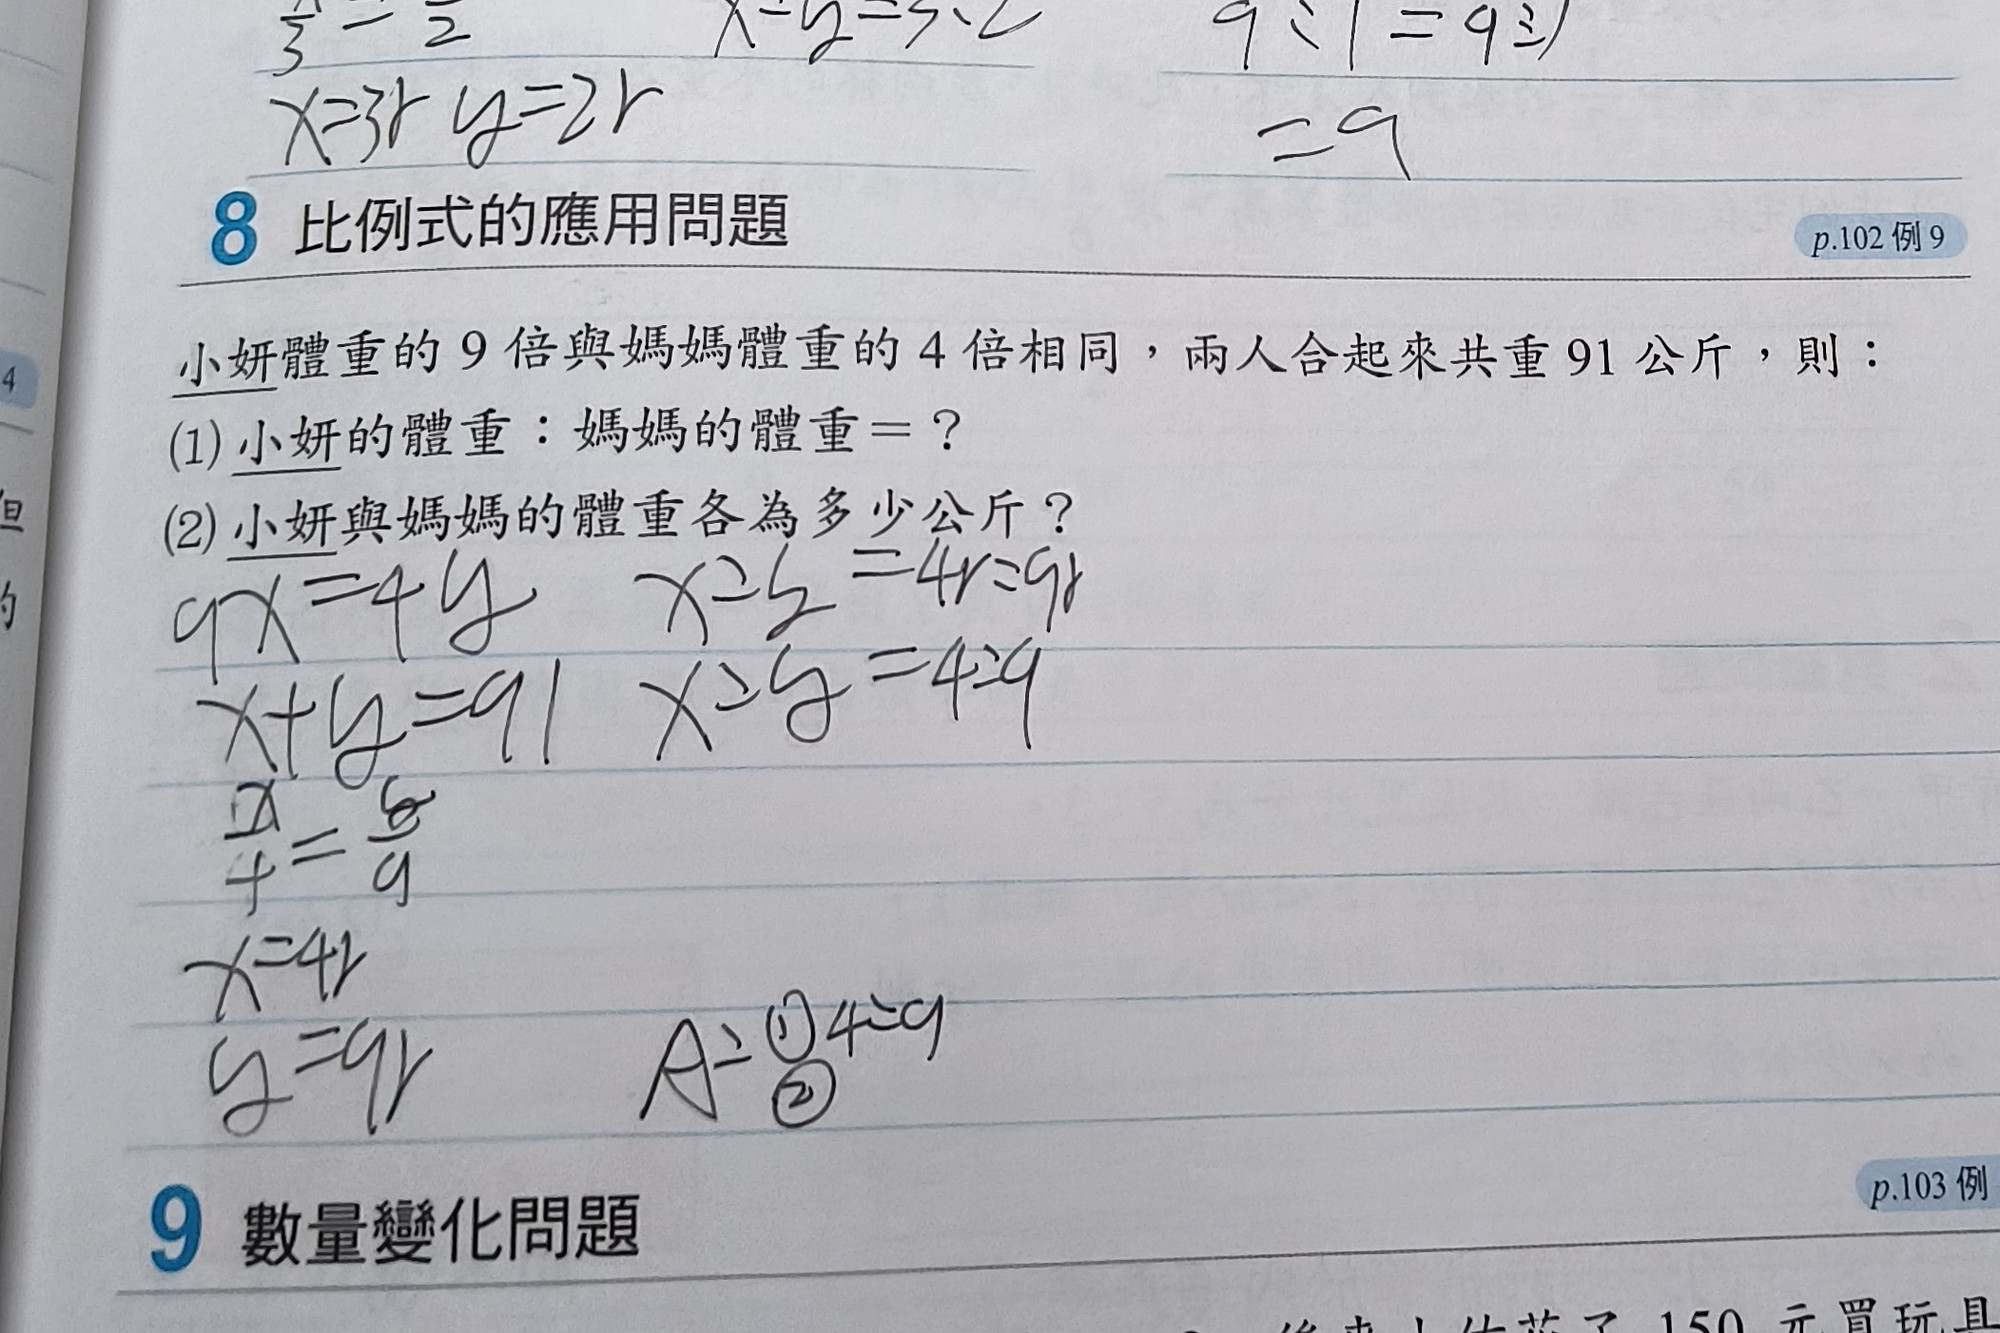 x/3 = y/2
x:y=3:2
9:1=9:1
x=3r y=2r
=9
8 比例式的應用問題
p.102 例 9
小妍體重的 9 倍與媽媽體重的 4 倍相同，兩人合起來共重 91 公斤，則：
4
(1) 小妍的體重：媽媽的體重=？
(2) 小妍與媽媽的體重各為多少公斤？
但
的
9x=4y x:y=4r:9r
x+y=91 x:y=4:9
x/4 = y/9
x=4r
y=9r
A:①4:9
②
9 數量變化問題
p.103 例
150 元買玩具